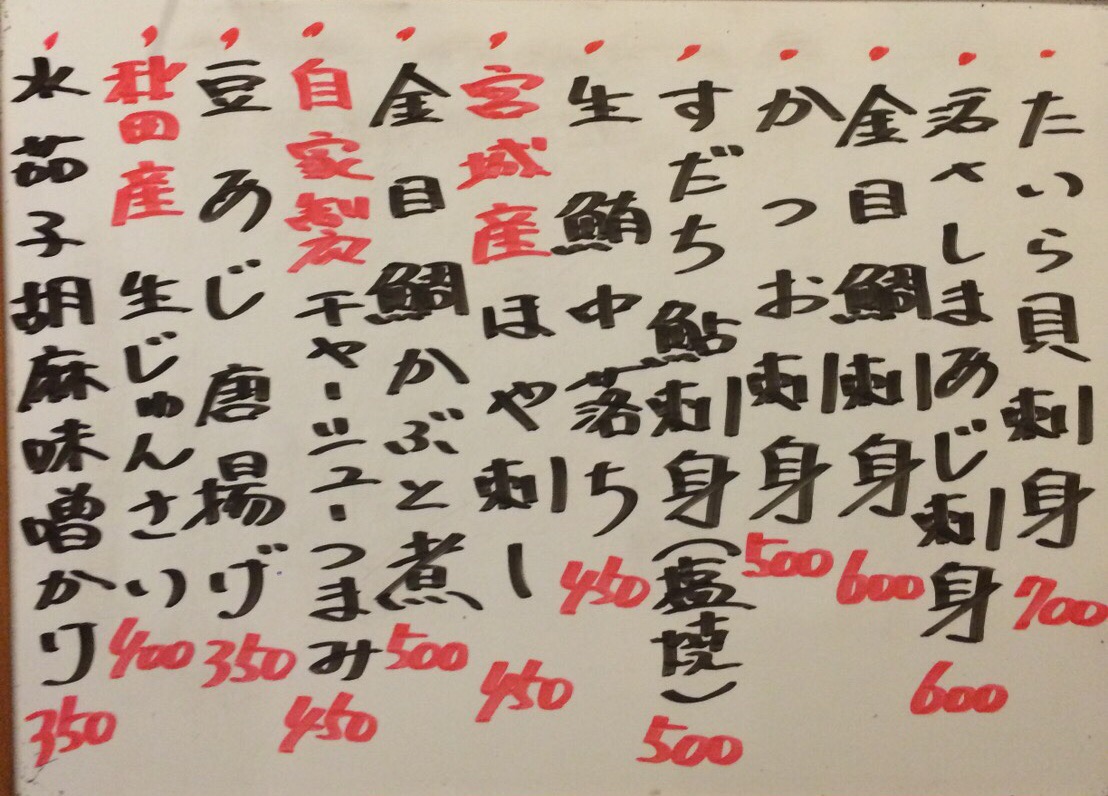 ・たいら貝刺身 700
・しまあじ刺身 600
・金目鯛刺身 600
・かつお刺身 500
・すだち鮎刺身(塩焼) 500
・生鮪中落ち 450
・宮城産ほや刺し 450
・金目鯛かぶと煮 500
・自家製チャーシューつまみ 450
・豆あじ唐揚げ 350
・秋田産生じゅんさい 400
・水茄子胡麻味噌かり 350